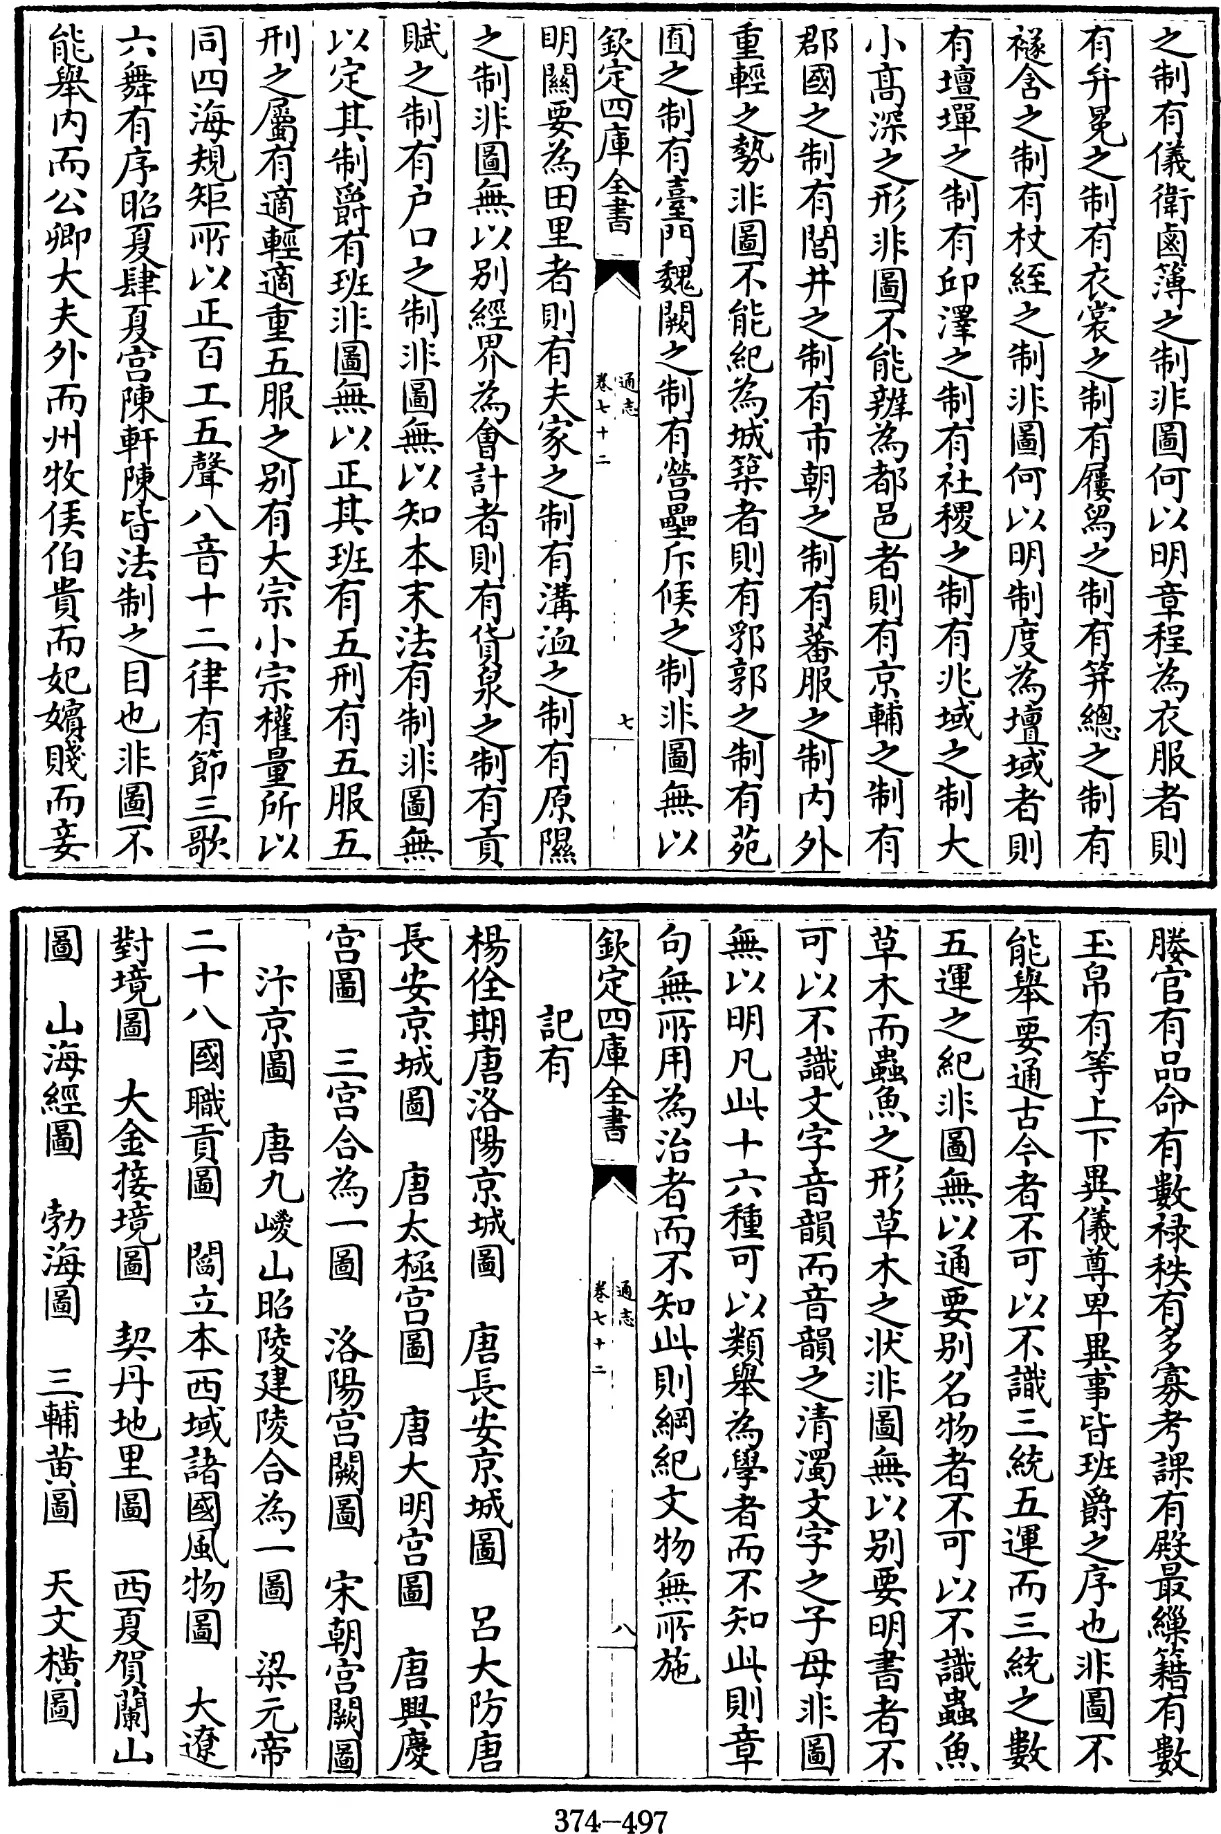 之制有儀衛鹵簿之制非圖何以明章程為衣服者則
有弁冕之制有衣裳之制有屨舄之制有笄總之制有
襚含之制有杖絰之制非圖何以明制度為壇域者則
有壇墠之制有邱澤之制有社稷之制有兆域之制大
小高深之形非圖不能辨為都邑者則有京輔之制有
郡國之制有閭井之制有市朝之制有蕃服之制内外
重輕之勢非圖不能紀為城築者則有郛郭之制有苑
囿之制有臺門魏闕之制有營壘斥候之制非圖無以
欽定四庫全書
通志
卷七十二
七
明關要為田里者則有夫家之制有溝洫之制有原隰
之制非圖無以别經界為會計者則有貨泉之制有貢
賦之制有户口之制非圖無以知本末法有制非圖無
以定其制爵有班非圖無以正其班有五刑有五服五
刑之屬有適輕適重五服之别有大宗小宗權量所以
同四海規矩所以正百工五聲八音十二律有節三歌
六舞有序昭夏肆夏宫陳軒陳皆法制之目也非圖不
能舉内而公卿大夫外而州牧侯伯貴而妃嬪賤而妾
媵官有品命有數禄秩有多寡考課有殿最繅籍有數
玉帛有等上下異儀尊卑異事皆班爵之序也非圖不
能舉要通古今者不可以不識三統五運而三統之數
五運之紀非圖無以通要别名物者不可以不識蟲魚
草木而蟲魚之形草木之狀非圖無以别要明書者不
可以不識文字音韻而音韻之清濁文字之子母非圖
無以明凡此十六種可以類舉為學者而不知此則章
句無所用為治者而不知此則綱紀文物無所施
欽定四庫全書
通志
卷七十二
八
記有
楊佺期唐洛陽京城圖　唐長安京城圖　呂大防唐
長安京城圖　唐太極宫圖　唐大明宫圖　唐興慶
宫圖　三宫合為一圖　洛陽宫闕圖　宋朝宫闕圖
汴京圖　唐九嵕山昭陵建陵合為一圖　梁元帝
二十八國職貢圖　閻立本西域諸國風物圖　大遼
對境圖　大金接境圖　契丹地里圖　西夏賀蘭山
圖　山海經圖　勃海圖　三輔黄圖　天文橫圖
374-497